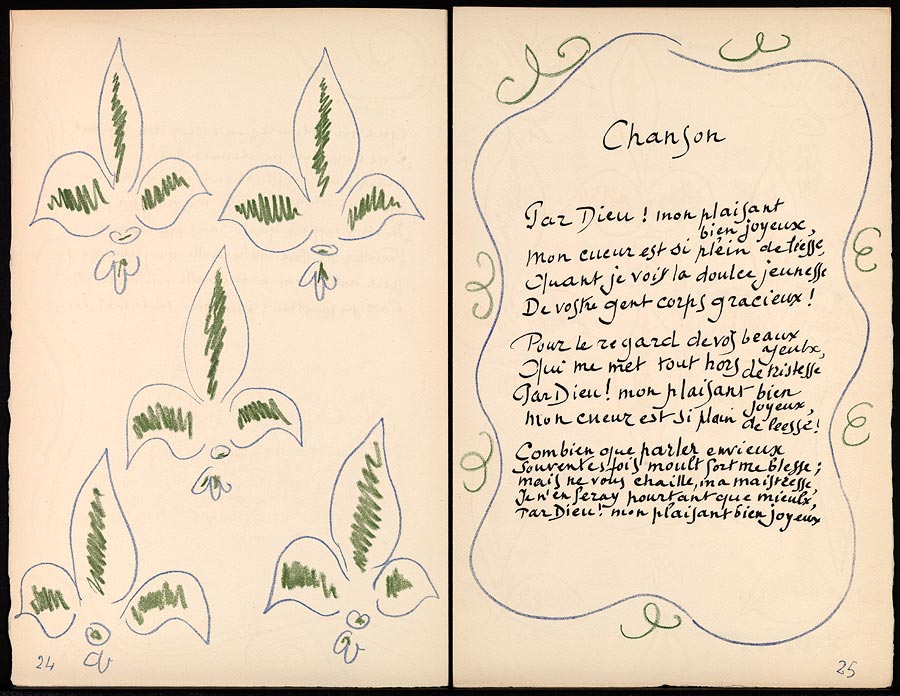 24
Chanson
Par Dieu ! mon plaisant
bien joyeux,
mon cueur est si plein de leesse,
Quant je vois la doulce jeunesse
De vostre gent corps gracieux !
Pour le regard de vos beaux
yeulx,
Qui me met tout hors de tristesse
Par Dieu ! mon plaisant bien
joyeux,
mon cueur est si plain de leesse !
Combien que parler envieux
souventes fois moult fort me blesse ;
mais ne vous chaille, ma maistresse,
Je n'en feray pourtant que mieulx,
Par Dieu ! mon plaisant bien joyeux
25